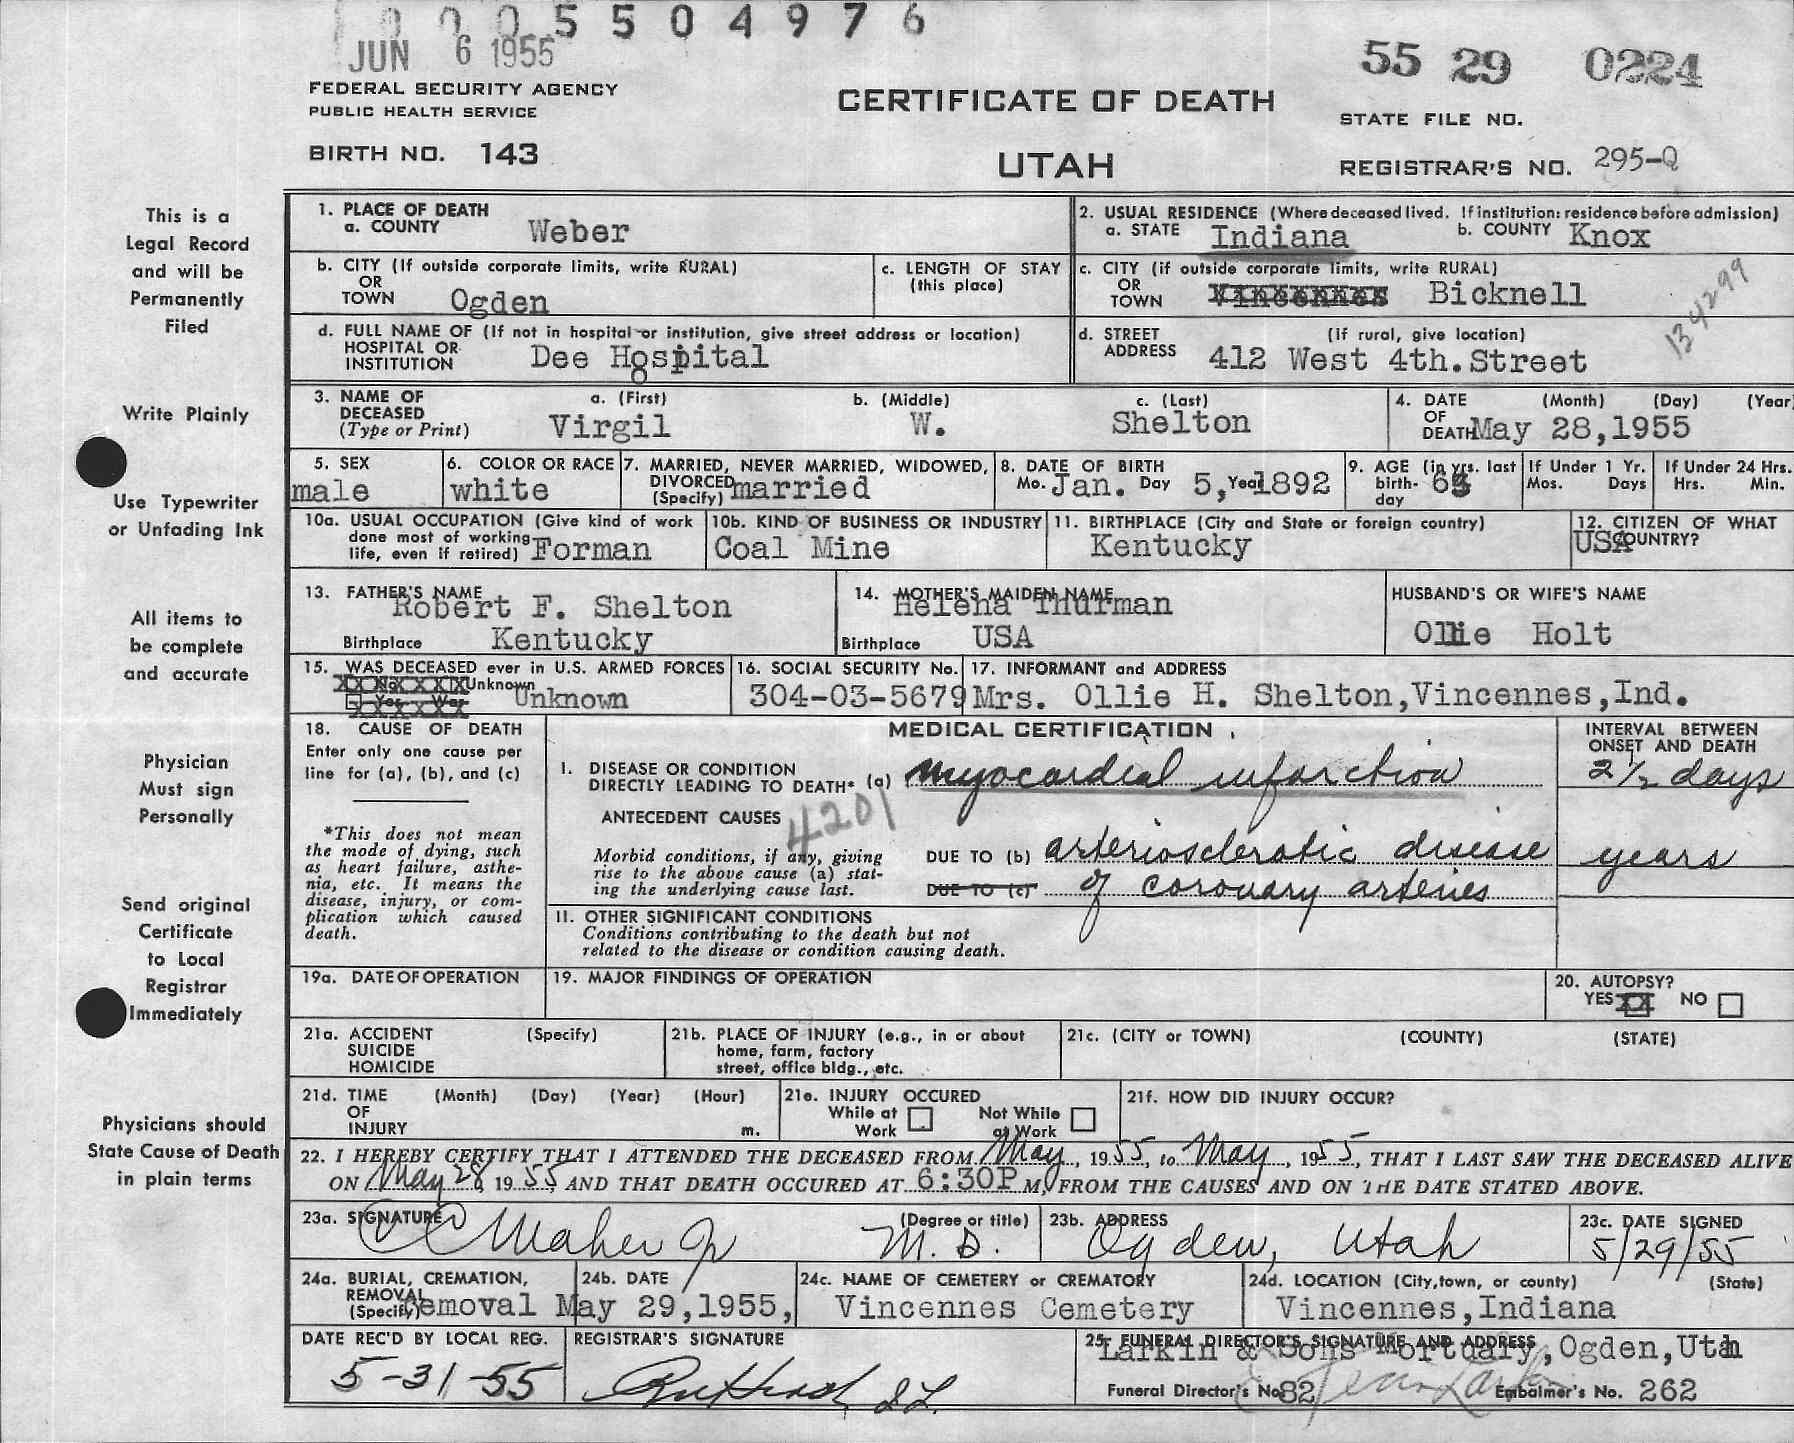 0 0 0 5 5 0 4 9 7 6
JUN 6 1955
55 29 0224
FEDERAL SECURITY AGENCY
PUBLIC HEALTH SERVICE
CERTIFICATE OF DEATH
STATE FILE NO.
BIRTH NO. 143
UTAH
REGISTRAR'S NO. 295-Q
This is a
Legal Record
and will be
Permanently
Filed
Write Plainly
Use Typewriter
or Unfading Ink
All items to
be complete
and accurate
Physician
Must sign
Personally
Send original
Certificate
to Local
Registrar
Immediately
Physicians should
State Cause of Death
in plain terms
1. PLACE OF DEATH
a. COUNTY Weber
2. USUAL RESIDENCE (Where deceased lived. If institution: residence before admission)
a. STATE Indiana b. COUNTY Knox
b. CITY (If outside corporate limits, write RURAL)
OR
TOWN Ogden
c. LENGTH OF STAY
(this place)
c. CITY (if outside corporate limits, write RURAL)
OR
TOWN Vincennes Bicknell
134299
d. FULL NAME OF (If not in hospital or institution, give street address or location)
HOSPITAL OR
INSTITUTION Dee Hospital
d. STREET (if rural, give location)
ADDRESS 412 West 4th. Street
3. NAME OF
DECEASED
(Type or Print)
a. (First) b. (Middle) c. (Last)
Virgil W. Shelton
4. DATE (Month) (Day) (Year)
OF
DEATH May 28,1955
5. SEX
male
6. COLOR OR RACE
white
7. MARRIED, NEVER MARRIED, WIDOWED,
DIVORCED
(Specify) married
8. DATE OF BIRTH
Mo. Jan. Day 5, Year 1892
9. AGE (in yrs. last
birth-
day 63
If Under 1 Yr.
Mos. Days
If Under 24 Hrs.
Hrs. Min.
10a. USUAL OCCUPATION (Give kind of work
done most of working
life, even if retired) Forman
10b. KIND OF BUSINESS OR INDUSTRY
Coal Mine
11. BIRTHPLACE (City and State or foreign country)
Kentucky
12. CITIZEN OF WHAT
COUNTRY?
USA
13. FATHER'S NAME
Robert F. Shelton
Birthplace Kentucky
14. MOTHER'S MAIDEN NAME
Helena Thurman
Birthplace USA
HUSBAND'S OR WIFE'S NAME
Ollie Holt
15. WAS DECEASED ever in U.S. ARMED FORCES
No Unknown
Yes War Unknown
16. SOCIAL SECURITY No.
304-03-5679
17. INFORMANT and ADDRESS
Mrs. Ollie H. Shelton,Vincennes,Ind.
18. CAUSE OF DEATH
Enter only one cause per
line for (a), (b), and (c)
*This does not mean
the mode of dying, such
as heart failure, asthe-
nia, etc. It means the
disease, injury, or com-
plication which caused
death.
MEDICAL CERTIFICATION
INTERVAL BETWEEN
ONSET AND DEATH
I. DISEASE OR CONDITION
DIRECTLY LEADING TO DEATH* (a) Myocardial infarction 2½ days
ANTECEDENT CAUSES 4201
Morbid conditions, if any, giving
rise to the above cause (a) stat-
ing the underlying cause last.
DUE TO (b) arteriosclerotic disease years
DUE TO (c) of coronary arteries
II. OTHER SIGNIFICANT CONDITIONS
Conditions contributing to the death but not
related to the disease or condition causing death.
19a. DATE OF OPERATION
19. MAJOR FINDINGS OF OPERATION
20. AUTOPSY?
YES XX NO
21a. ACCIDENT (Specify)
SUICIDE
HOMICIDE
21b. PLACE OF INJURY (e.g., in or about
home, farm, factory
street, office bldg., etc.
21c. (CITY or TOWN) (COUNTY) (STATE)
21d. TIME (Month) (Day) (Year) (Hour)
OF
INJURY m.
21e. INJURY OCCURED
While at Not While
Work at Work
21f. HOW DID INJURY OCCUR?
22. I HEREBY CERTIFY THAT I ATTENDED THE DECEASED FROM May, 1955, to May, 1955, THAT I LAST SAW THE DECEASED ALIVE
ON May 28, 1955, AND THAT DEATH OCCURED AT 6:30P M, FROM THE CAUSES AND ON THE DATE STATED ABOVE.
23a. SIGNATURE (Degree or title)
Maher Jr M.D.
23b. ADDRESS
Ogden, Utah
23c. DATE SIGNED
5/29/55
24a. BURIAL, CREMATION,
REMOVAL
(Specify) Removal
24b. DATE
May 29,1955,
24c. NAME OF CEMETERY or CREMATORY
Vincennes Cemetery
24d. LOCATION (City,town, or county) (State)
Vincennes,Indiana
DATE REC'D BY LOCAL REG.
5-31-55
REGISTRAR'S SIGNATURE
25. FUNERAL DIRECTOR'S SIGNATURE AND ADDRESS
Larkin & Sons Mortuary,Ogden,Utah
Funeral Director's No. 82 Embalmer's No. 262